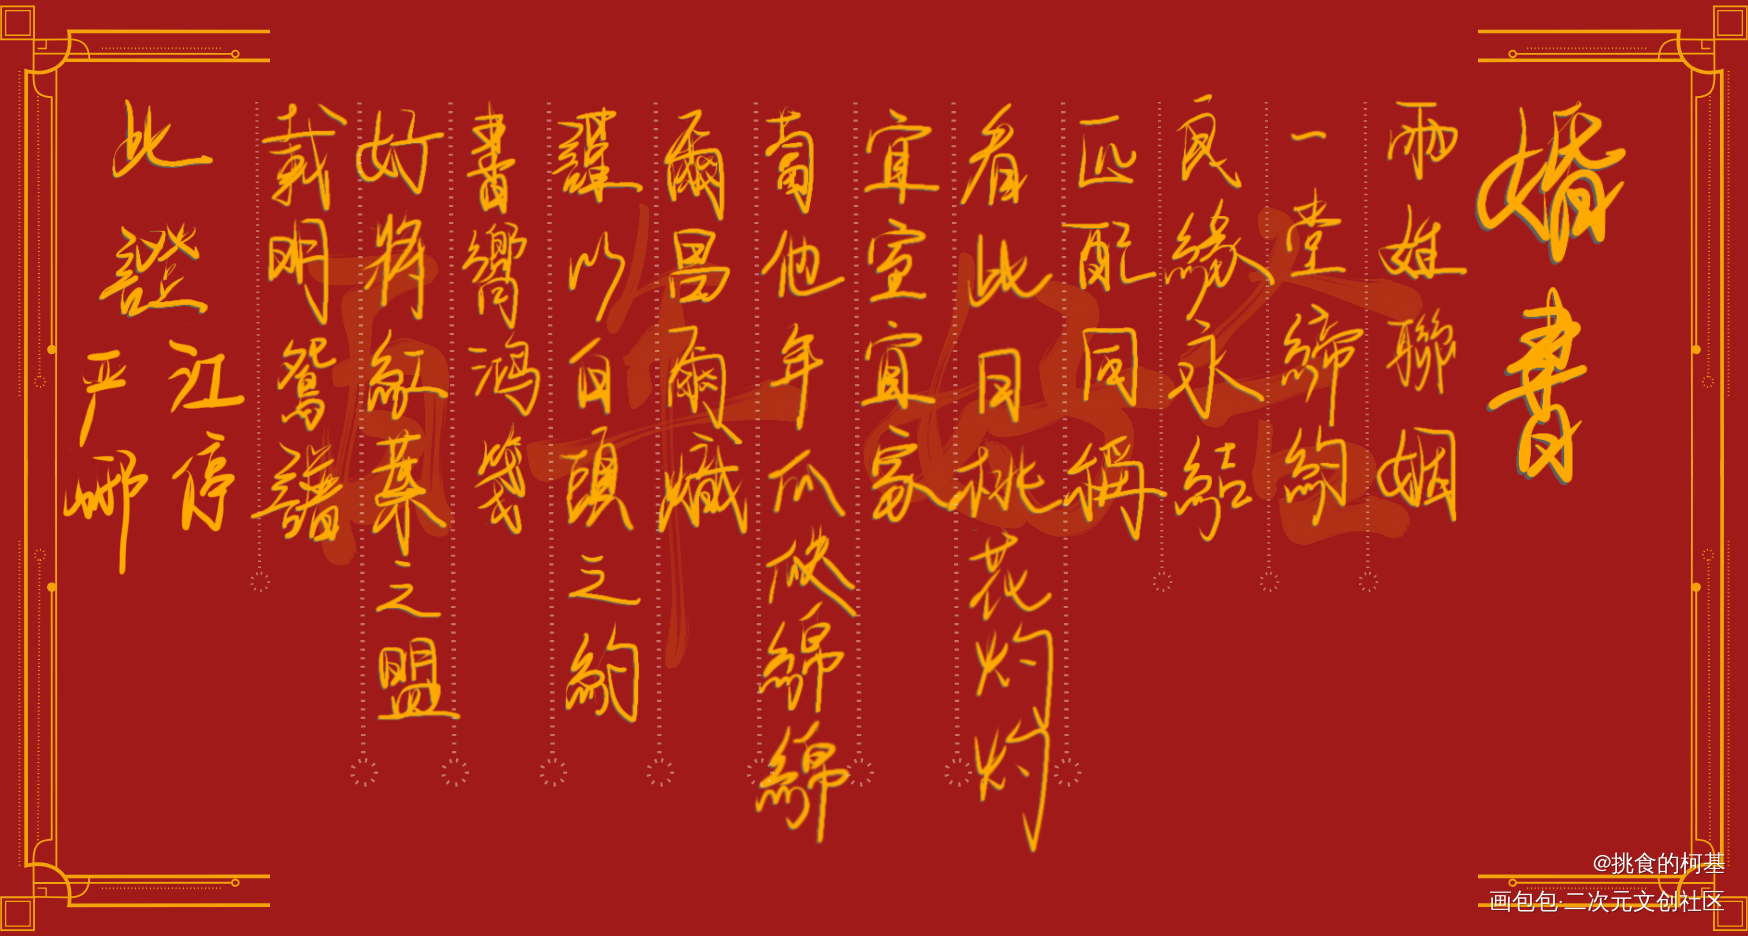 婚書
兩姓聯姻
一堂締約
良緣永結
匹配同稱
看此日桃花灼灼
宜室宜家
蔔他年瓜瓞綿綿
爾昌爾熾
謹以白頭之約
書嚮鴻箋
好將紅葉之盟
載明鴛譜
此證
江停
严峫
@挑食的柯基
画包包·二次元文创社区